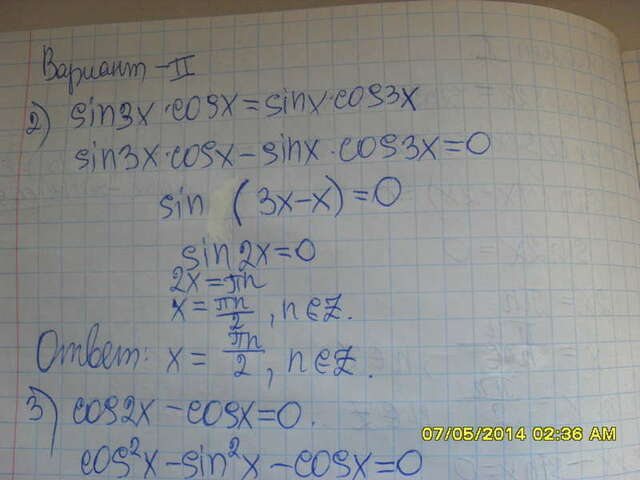 Вариант - II
2) sin3x · cosx = sinx · cos3x
sin3x · cosx - sinx · cos3x = 0
sin (3x - x) = 0
sin 2x = 0
2x = πn
x = πn/2, n ∈ Z.
Ответ: x = πn/2, n ∈ Z.
3) cos2x - cosx = 0.
cos²x - sin²x - cosx = 0
07/05/2014 02:36 AM